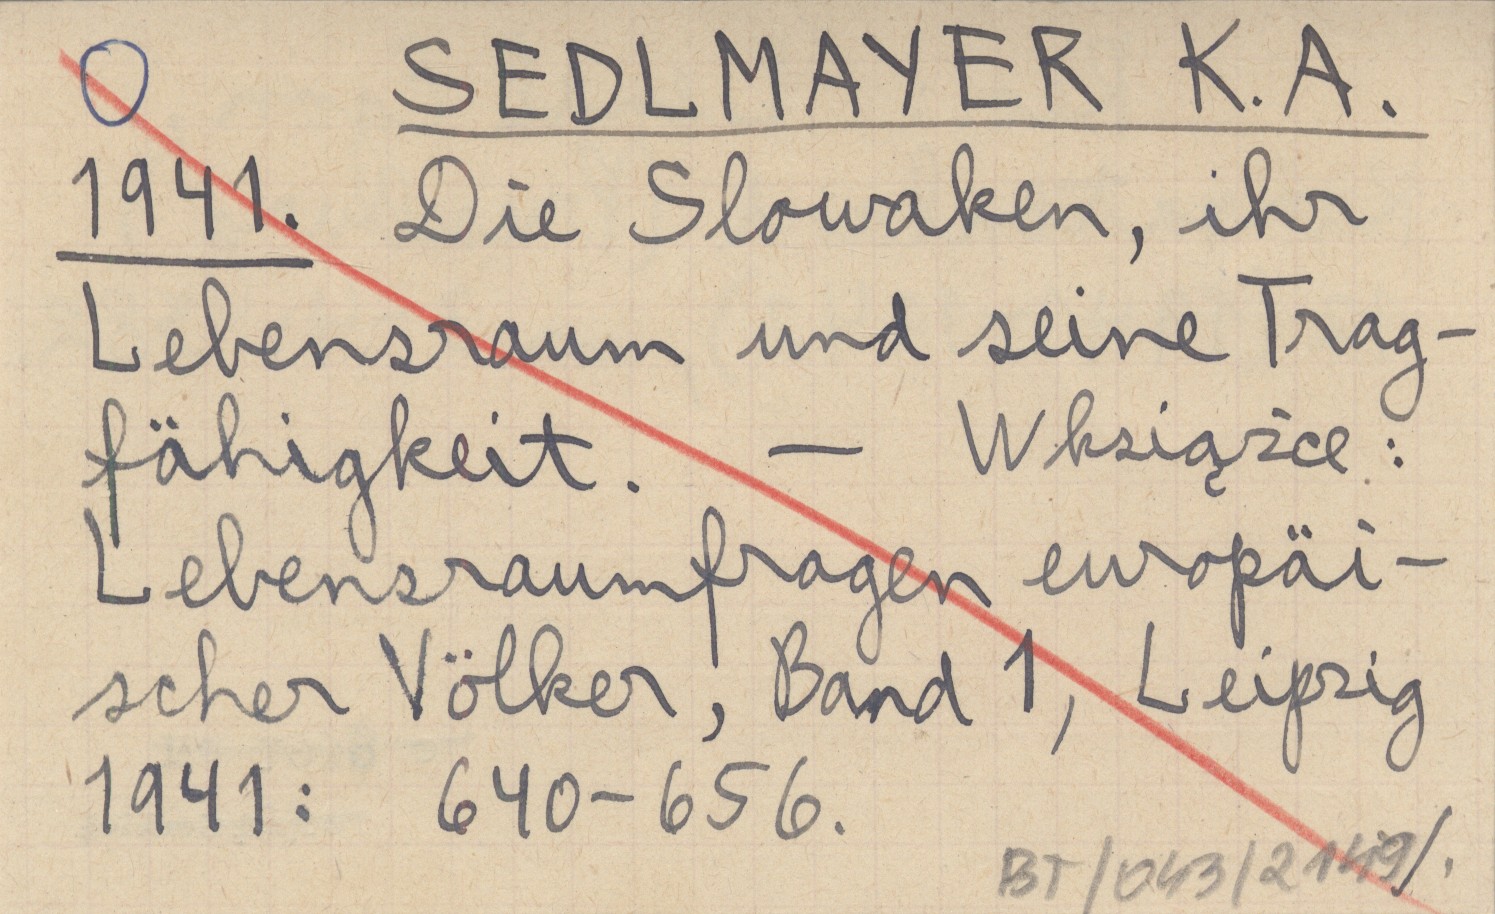 O SEDLMAYER K.A.
1941. Die Slowaken, ihr
Lebensraum und seine Trag-
fähigkeit. — W książce:
Lebensraumfragen europäi-
scher Völker, Band 1, Leipzig
1941: 640-656.
BT/043/2